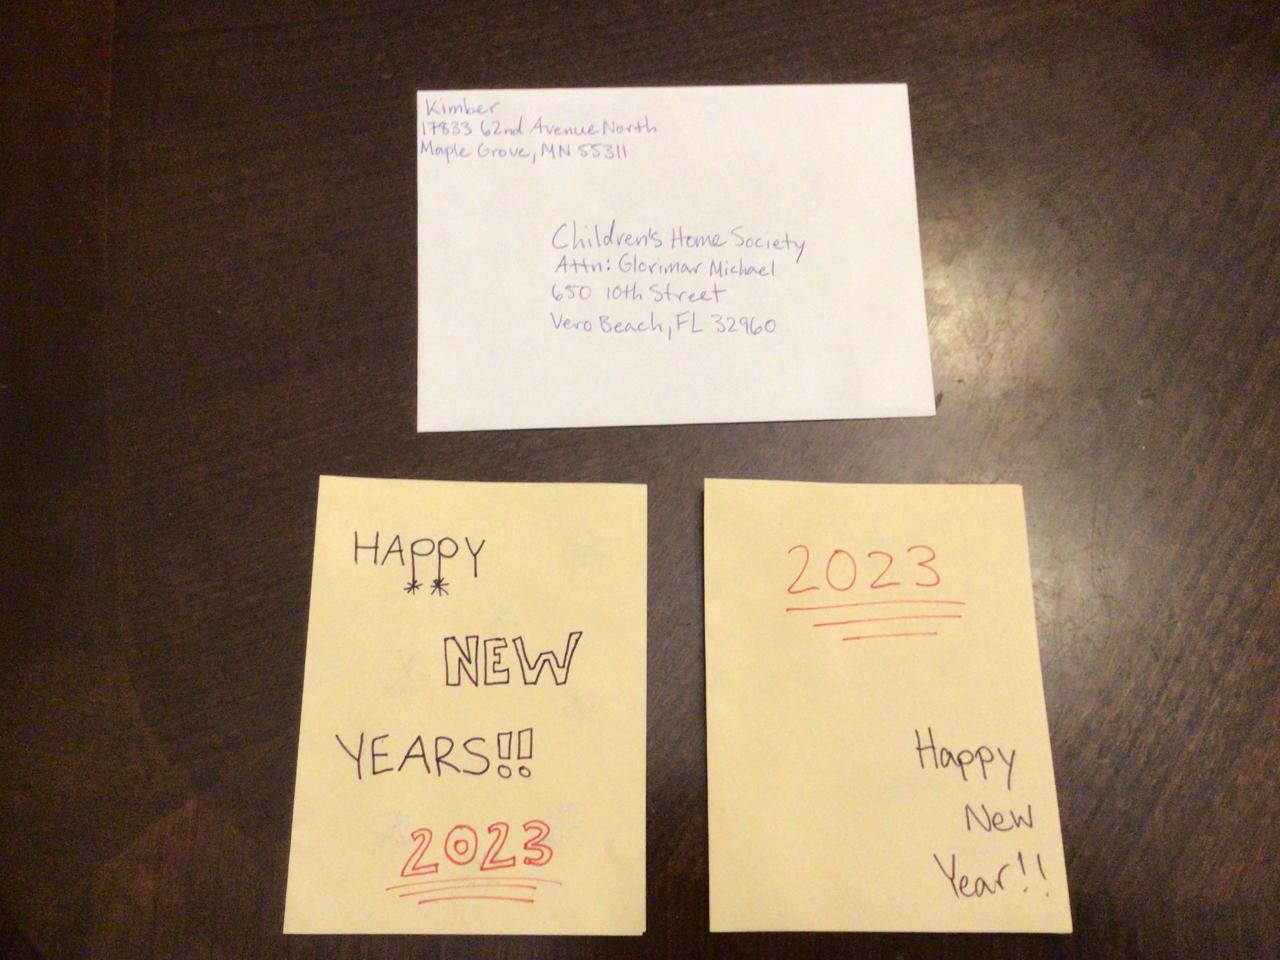 Kimber
17833 62nd Avenue North
Maple Grove, MN 55311
Children's Home Society
Attn: Glorimar Michael
650 10th Street
Vero Beach, FL 32960
HAPPY
**
NEW
YEARS!!
2023
2023
Happy
New
Year!!